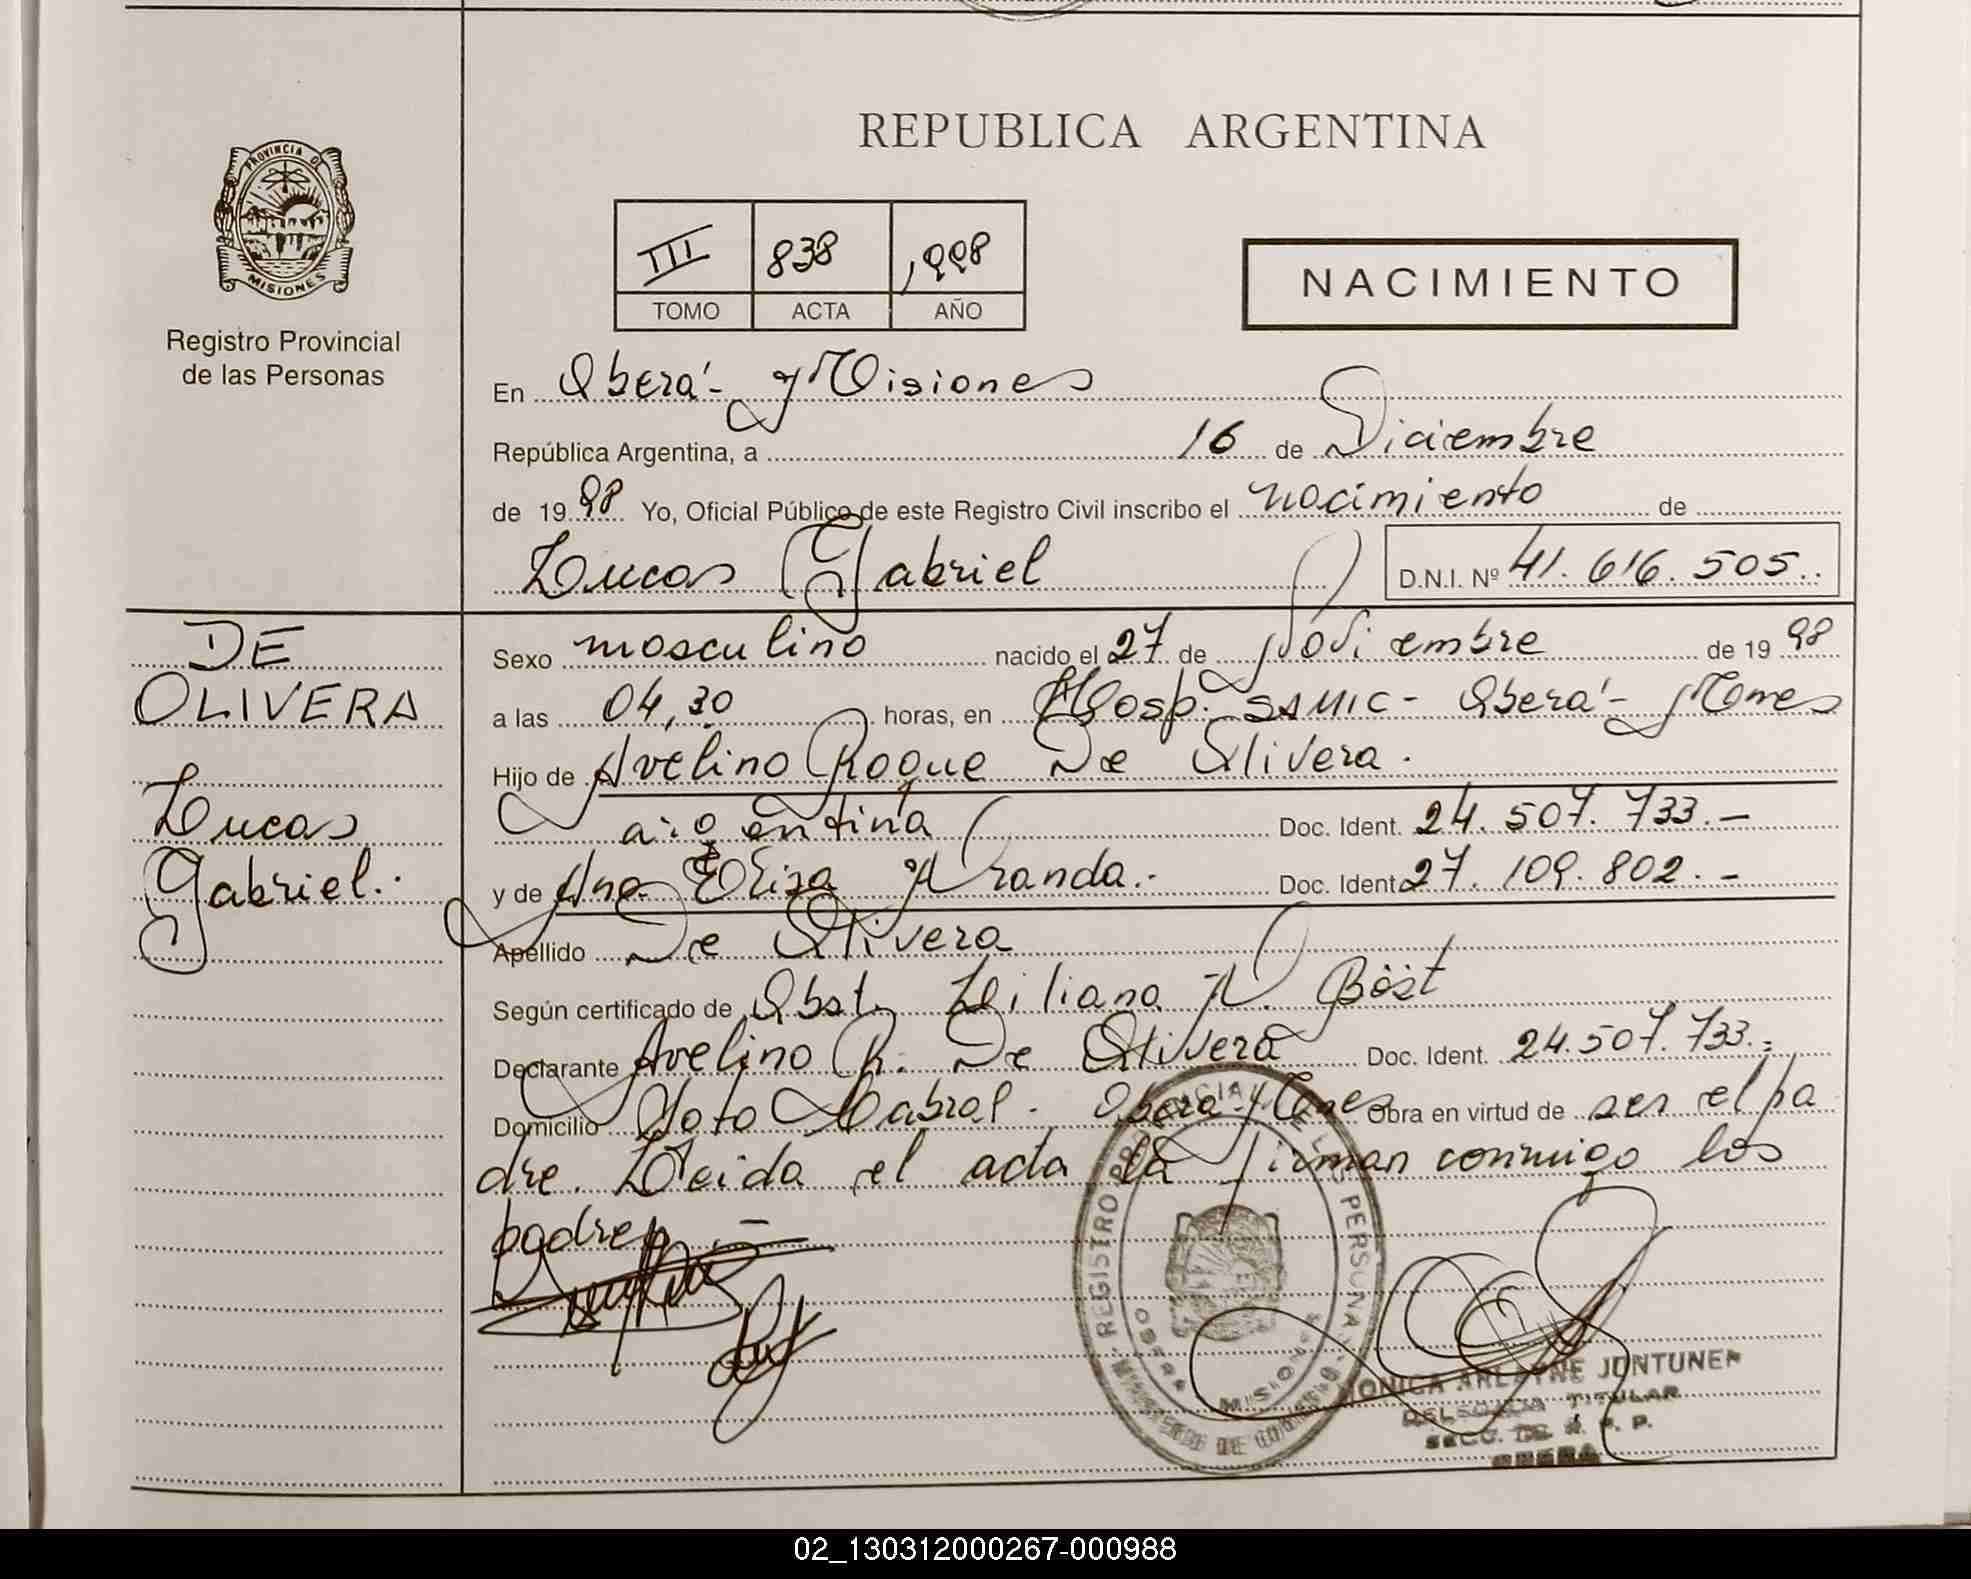 REPUBLICA ARGENTINA
PROVINCIA DE
MISIONES
Registro Provincial
de las Personas
III 838 1998
TOMO ACTA AÑO
NACIMIENTO
En Oberá - Misiones
República Argentina, a 16 de Diciembre
de 1998 Yo, Oficial Público de este Registro Civil inscribo el nacimiento de
Lucas Gabriel D.N.I. Nº 41.616.505..
DE
OLIVERA
Lucas
Gabriel.-
Sexo masculino nacido el 27 de Noviembre de 1998
a las 04,30 horas, en Hosp. SAMIC - Oberá - Mnes
Hijo de Avelino Roque De Olivera.
argentina Doc. Ident. 24.507.733.-
y de Ana Eliza Aranda.- Doc. Ident. 27.109.802.-
Apellido De Olivera
Según certificado de Obst. Liliana N. Böst
Declarante Avelino R. De Olivera Doc. Ident. 24.507.733.-
Domicilio Soto Cabral. Oberá - Mnes Obra en virtud de ser el pa
dre. Leida el acta la firman conmigo los
padres.-
REGISTRO PROVINCIAL DE LAS PERSONAS
OBERA MISIONES
MONICA ARLEYNE JUNTUNEN
DELEGADA TITULAR
SECC. DE R. P. P.
OBERA
02_130312000267-000988